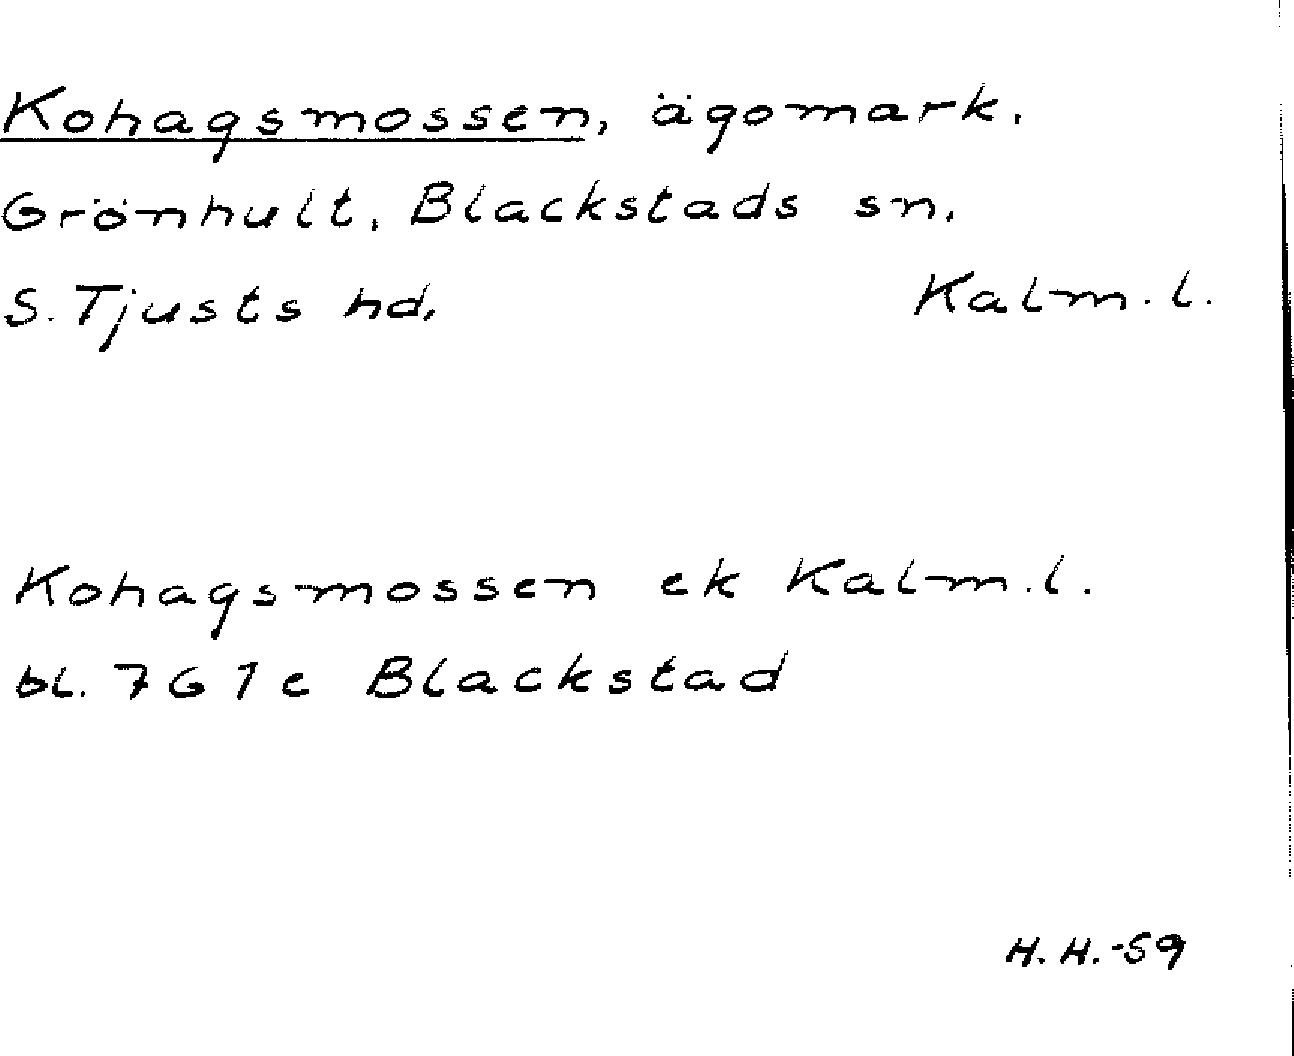 Kohagsmossen, ägomark.
Grönhult, Blackstads sn.
S. Tjusts hd. Kalm. l.
Kohagsmossen ek Kalm. l.
bl. 7G1e Blackstad
H. H. -59